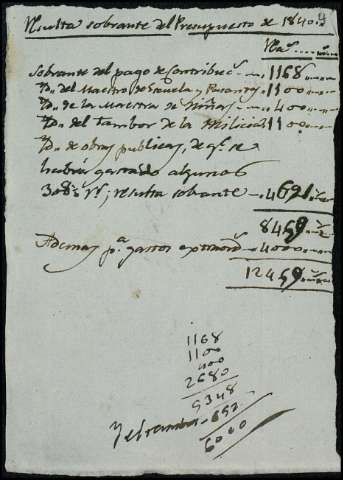 Resulta sobrante del Presupuesto de 1840
Rs
Sobrante del pago de Contribuc.s 1168
Yd. del Maestro de Escuela y Pasante 1100
Yd. de la Maestra de Niñas 400
Yd. del tambor de la Milicia 1100
Yd. de obras publicas, de q.e se
habrá gastado algunos
308 rs; resulta sobrante 4691
8459
Ademas p.a gastos extraord.s 4000
12459
1168
1100
400
2680
5348
Yd tambor 652
6000